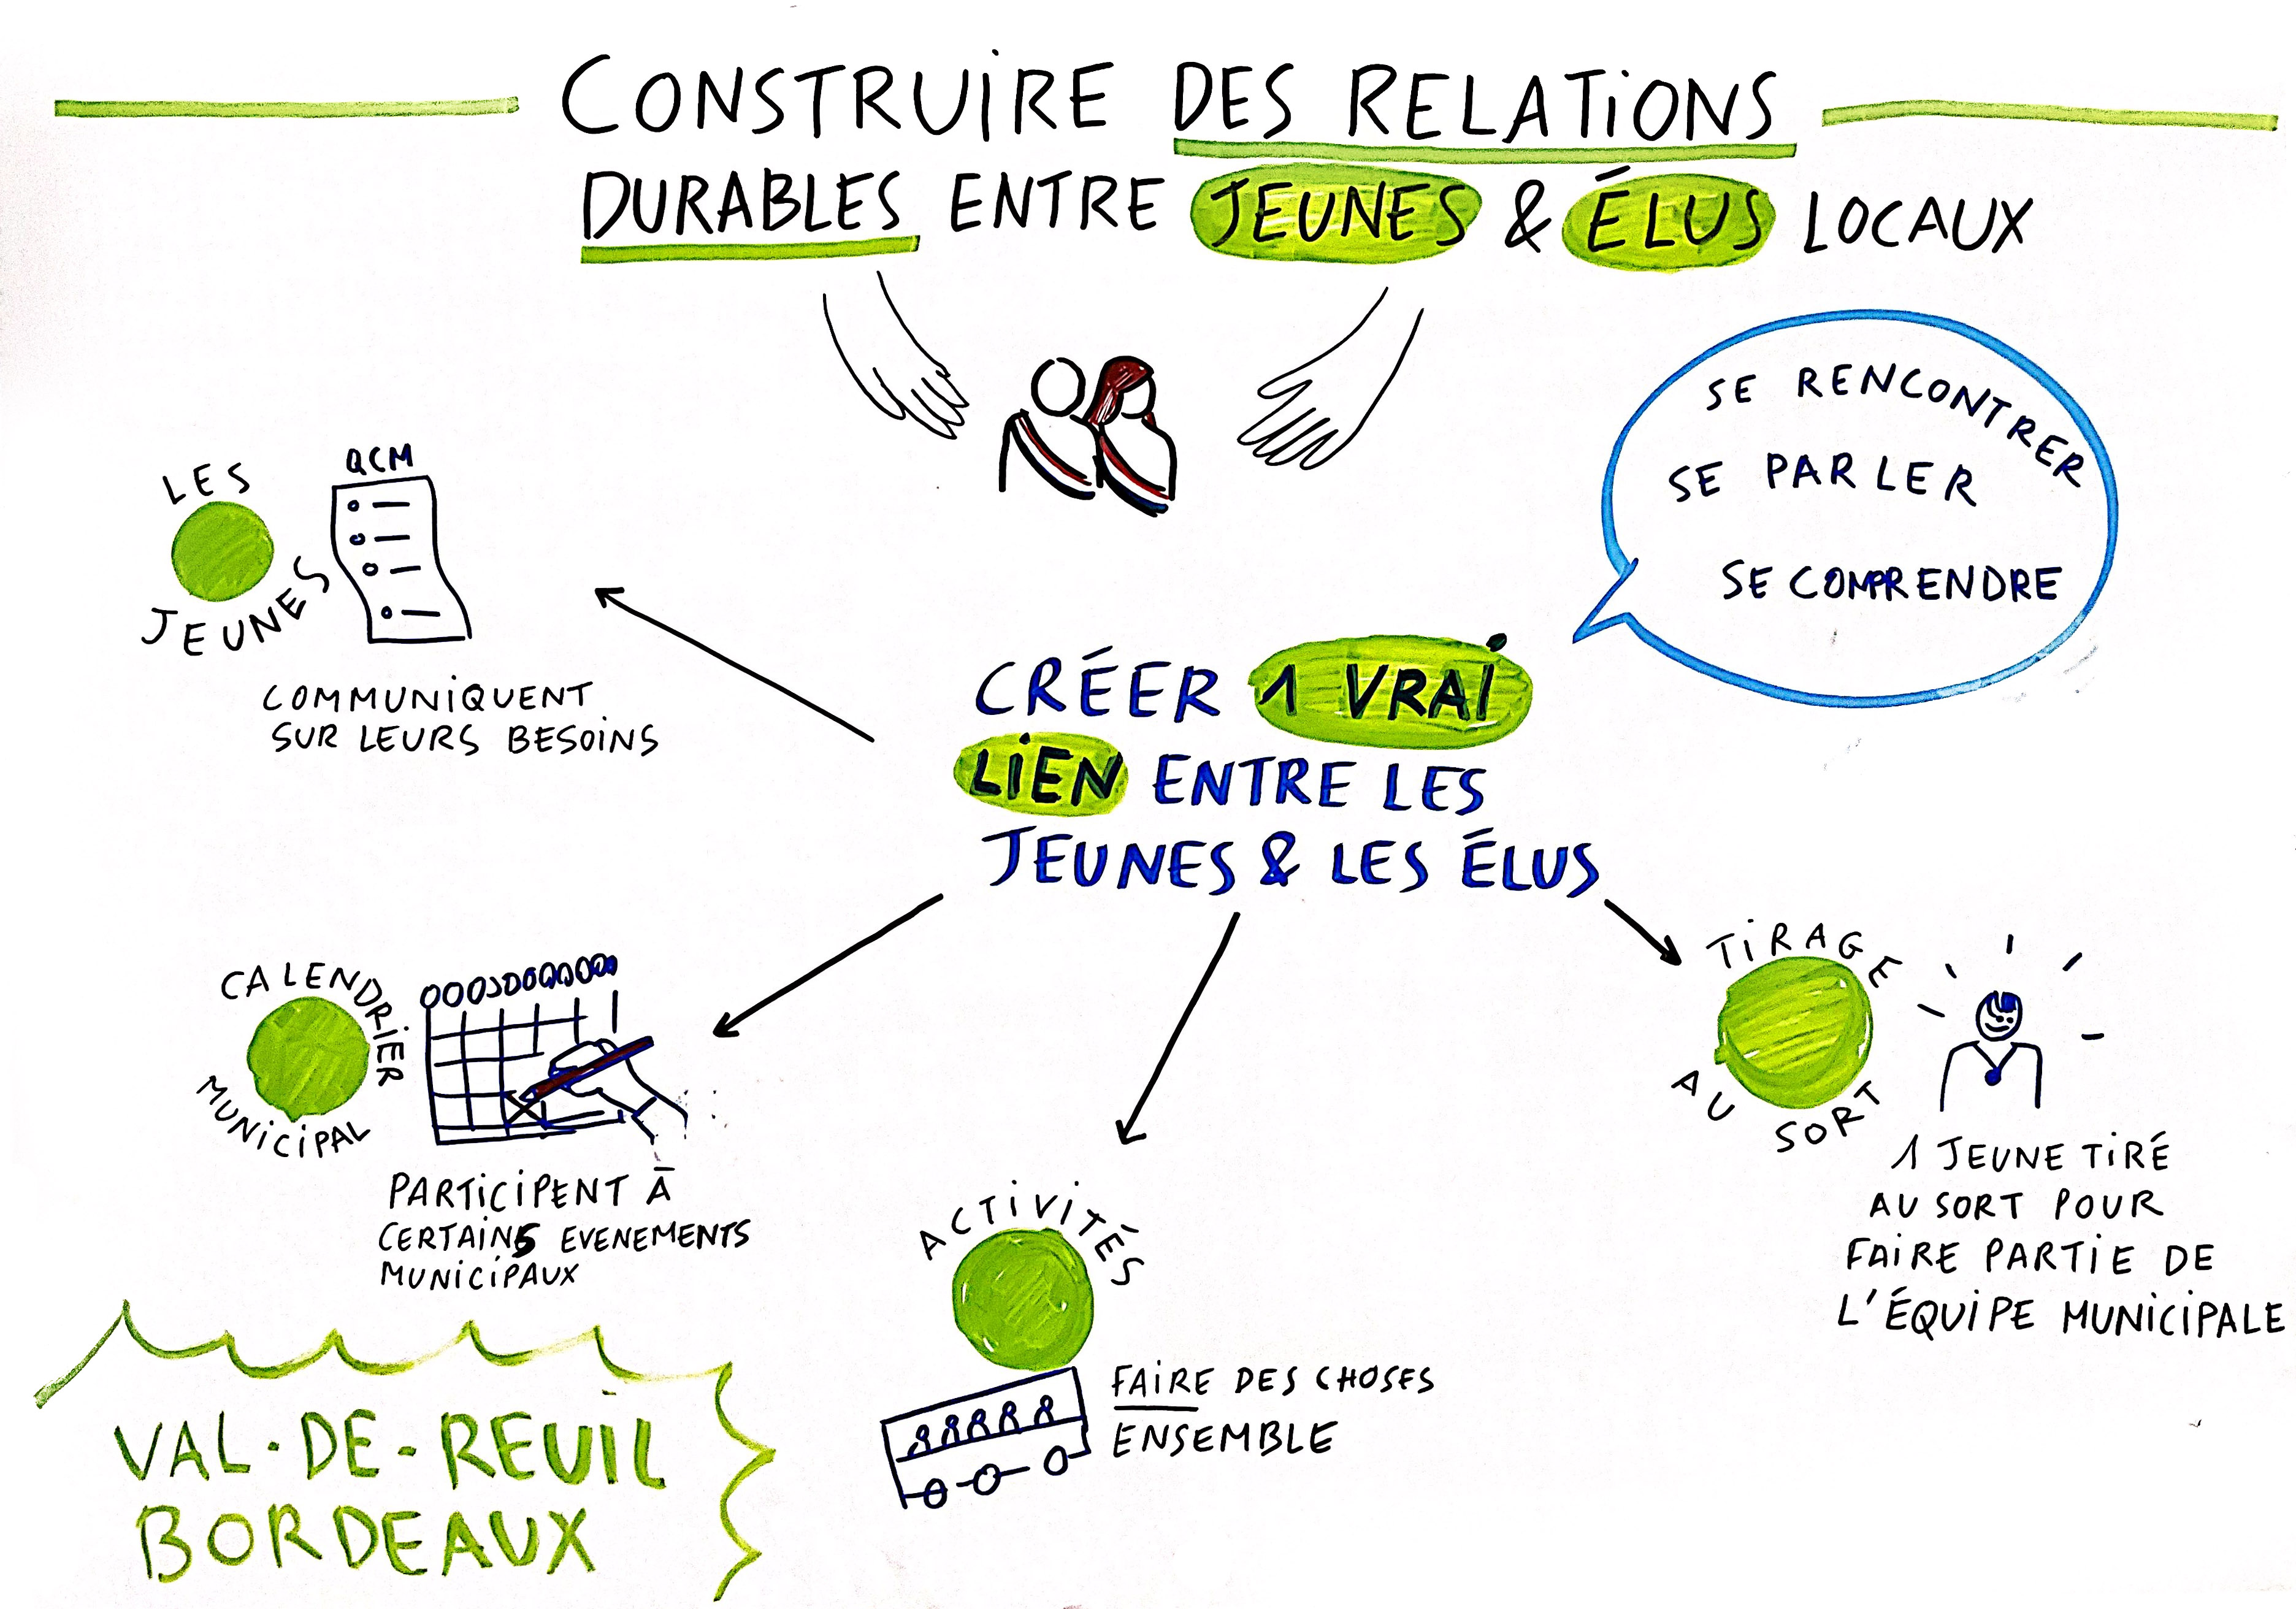 CONSTRUiRE DES RELATiONS
DURABLES ENTRE JEUNES & ÉLUS LOCAUX
SE RENCONTRER
SE PARLER
SE COMPRENDRE
LES
JEUNES
QCM
COMMUNiQUENT
SUR LEURS BESOiNS
CRÉER 1 VRAi
LiEN ENTRE LES
JEUNES & LES ÉLUS
CALENDRiER
MUNiCiPAL
PARTiCiPENT À
CERTAiNS EVENEMENTS
MUNiCiPAUX
TiRAGE
AU SORT
1 JEUNE TiRÉ
AU SORT POUR
FAiRE PARTiE DE
L'ÉQUiPE MUNiCiPALE
ACTiViTÉS
FAiRE DES CHOSES
ENSEMBLE
VAL-DE-REUiL
BORDEAUX